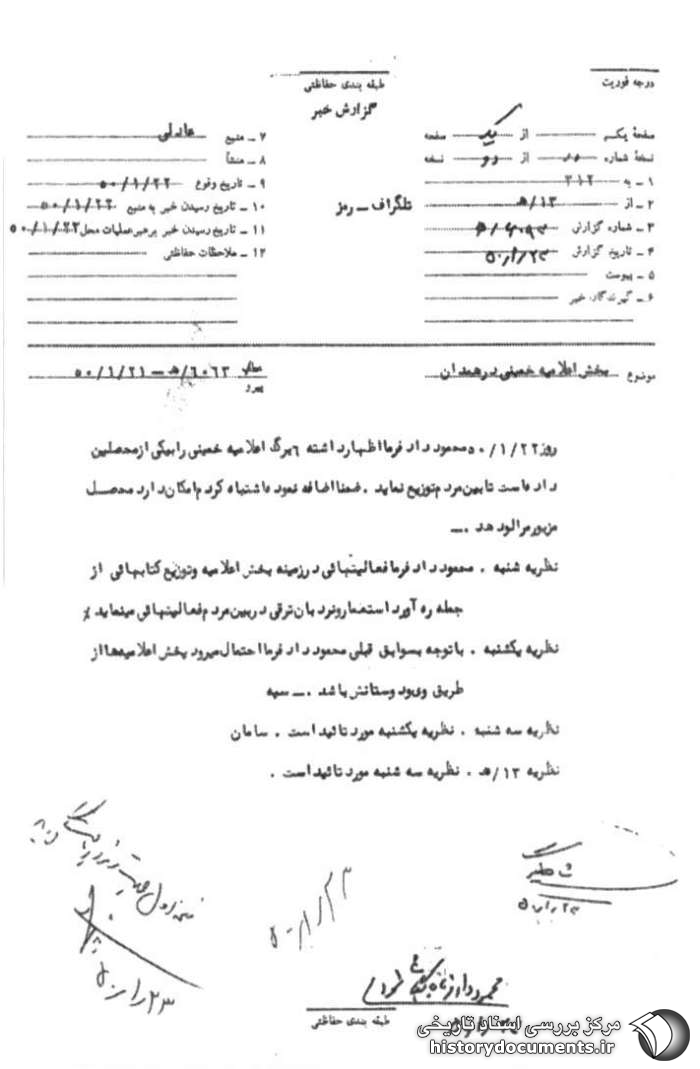 درجه فوریت
طبقه بندی حفاظتی
گزارش خبر
صفحهٔ یکم از یک صفحه
نسخهٔ شماره از دو نسخه
۱ ــ به ۳۱۲
۲ ــ از ۱۳/ﻫ
۳ ــ شماره گزارش
۴ ــ تاریخ گزارش ۵۰/۱/۲۳
۵ ــ پیوست
۶ ــ گیرندگان خبر
تلگراف ــ رمز
۷ ــ منبع عادلی
۸ ــ منشأ
۹ ــ تاریخ وقوع ۵۰/۱/۲۲
۱۰ ــ تاریخ رسیدن خبر به منبع ۵۰/۱/۲۲
۱۱ ــ تاریخ رسیدن خبر برهبر عملیات محل ۵۰/۱/۲۳
۱۲ ــ ملاحظات حفاظتی
موضوع پخش اعلامیه خمینی در همدان
پیرو ۶۰۶۳/ﻫ ــ ۵۰/۱/۲۱
روز ۵۰/۱/۲۲ محمود دادفرما اظهار داشته ۶ برگ اعلامیه خمینی را بیکی از محصلین
داده است تا بین مردم توزیع نماید . ضمنا اضافه نمود ه اشتباه کردم امکان دارد محصل
مزبور مرا لو دهد . ــ
نظریه شنبه . محمود دادفرما فعالیتهائی در زمینه پخش اعلامیه و توزیع کتابهائی از
جمله ره آورد استعمار و نردبان ترقی در بین مردم فعالیتهائی مینماید ٪
نظریه یکشنبه . با توجه بسوابق قبلی محمود دادفرما احتمال میرود پخش اعلامیه‌ها از
طریق وی و دوستانش باشد . ــ سیه
نظریه سه شنبه . نظریه یکشنبه مورد تائید است . سامان
نظریه ۱۳/ﻫ . نظریه سه شنبه مورد تائید است .
۵۰/۱/۲۳
۵۰/۱/۲۳
۵۰/۱/۲۳
طبقه بندی حفاظتی
مرکز بررسی اسناد تاریخی
historydocuments.ir